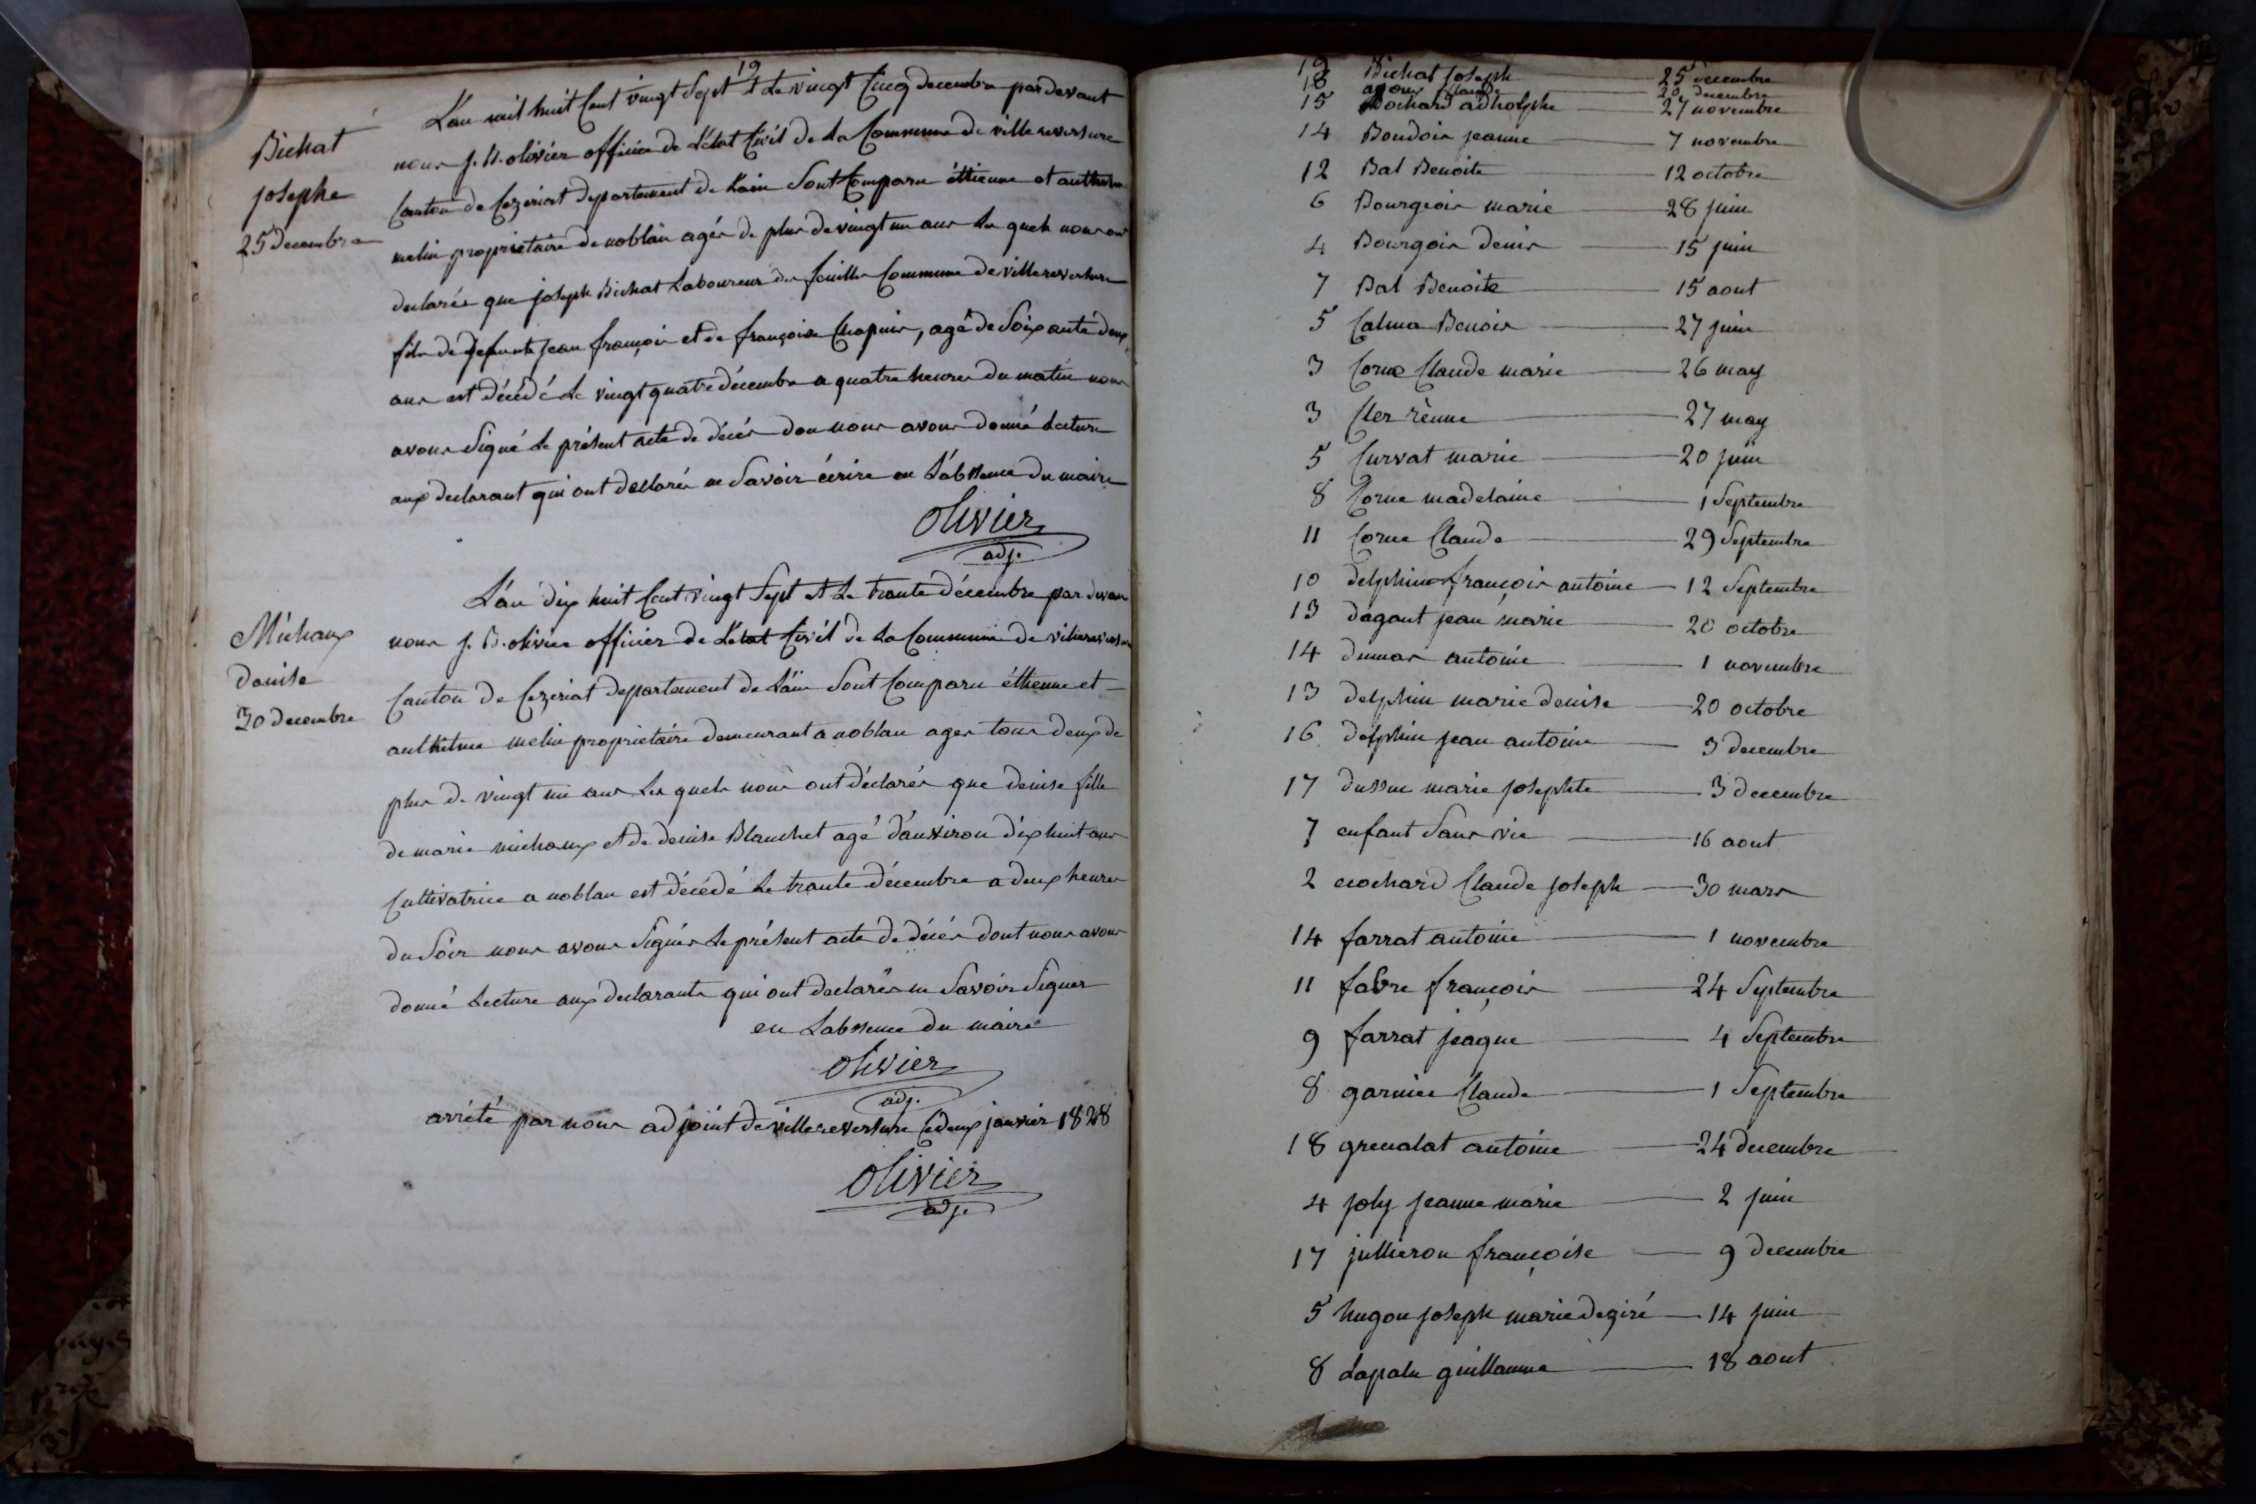 19
Bichat
josephe
25 decembre
L'an mil huit Cent vingt Sept et Le vingt Cinq decembre par devant
nous j. B. olivier officier de L'état Civil de La Commune de villereversure
Canton de Cezeriat departement de L'ain Sont Comparu éttienne et anthelme
melin propriétaire de noblan agés de plus de vingt un ans Les quels nous ont
declarés que joseph Bichat Laboureur de feuilles Commune de villereversure
fils de defunts jean françois et de françoise Chapuis, agé de Soixante deux
ans est décédé Le vingt quatre décembre a quatre heures du matin nous
avons Signé Le présent acte de décés don nous avons donné Lecture
aux declarant qui ont declarés ne Savoir écrire en L'abssence du maire
olivier
adj.
Michaux
denise
30 decembre
L'an dix huit Cent vingt Sept et Le trante décembre par devant
nous j. B. olivier officier de L'etat Civil de La Commune de villereversure
Canton de Cezeriat departement de L'ain Sont Comparu éttienne et
anthelme melin propriétaire demeurant a noblan agés tous deux de
plus de vingt un ans Les quels nous ont déclarés que denise fille
de marie michaux et de denise Blanchet agé d'anviron dix huit ans
Cultivatrice a noblan est décédé Le trante décembre a deux heures
du Soir nous avons Signés Le présent acte de décés dont nous avons
donné Lecture aux declarants qui ont declarés ne Savoir Signer
en Labssence du maire
olivier
adj.
arrété par nous adjoint de villereversure Ce deux janvier 1828
olivier
adj.
19 Bichat joseph 25 decembre
18 Claude 20 decembre
15 Bochard adholphe 27 novembre
14 Boudois jeanne 7 novembre
12 Bal Benoite 12 octobre
6 Bourgeois marie 28 juin
4 Bourgois denis 15 juin
7 Bal Benoite 15 aout
5 Calma Benois 27 juin
3 Corne Claude marie 26 may
3 Cler rènne 27 may
5 Curvat marie 20 juin
8 Corne madelaine 1 Septembre
11 Corne Claude 29 Septembre
10 delphin françois antoine 12 Septembre
13 dagant jean marie 20 octobre
14 dumas antoine 1 novembre
13 delphin marie denise 20 octobre
16 delphin jean antoine 3 decembre
17 dussuc marie josephte 3 decembre
7 enfant Sans vie 16 aout
2 ecochard Claude joseph 30 mars
14 farrat antoine 1 novembre
11 fabre françois 24 Septembre
9 farrat jeaque 4 Septembre
8 garnier Claude 1 Septembre
18 grenalat antoine 24 decembre
4 joly jeanne marie 2 juin
17 jullieron françoise 9 decembre
5 hugon joseph marie degiré 14 juin
8 Lapalu guillaume 18 aout